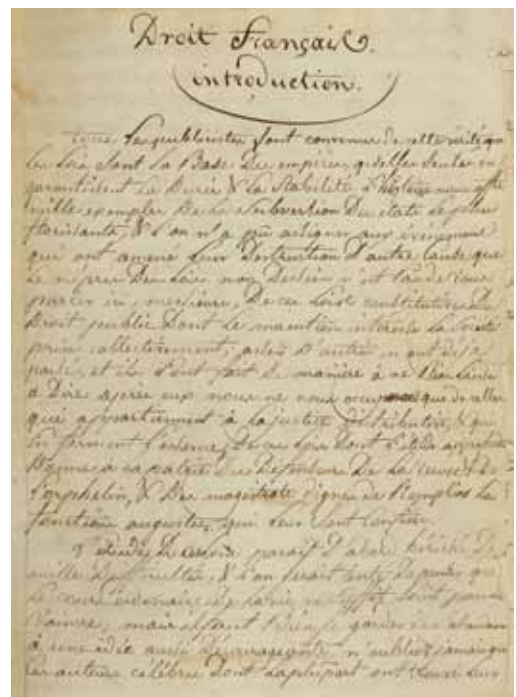 Droit Français.
introduction.
tous les publicistes sont convenus de cette vérité que
les loix sont la Base des empires, qu'elles seules en
garantissent la Durée & la Stabilité. L'histoire nous offre
mille exemples De la Subversion Des états les plus
florissants, & l'on n'a pû assigner aux événemens
qui ont amené leur Destruction D'autre cause que
le mépris Des loix, mon Dessein n'est pas de vous
parler ici, messieurs, De ces loix constitutives du
Droit public Dont le maintien intéresse la Société
prise collectivement, assés D'autres en ont déjà
parlé, et ils l'ont fait de manière à ne rien laisser
à Dire après eux nous ne nous occuperons que de celles
qui appartiennent à la justice distributive, & qui
en forment l'ensemble, De ces loix Dont l'étude
Donne à sa patrie Des Défenseurs De la veuve & de
l'orphelin, & Des magistrats dignes de Remplir les
fonctions augustes, qui leur sont confiées.
L'étude De paraît D'abord hérissée De
mille Difficultés, & l'on serait tenté De penser que
le
vaincre, mais Bien De garder
à une idée aussi Décourageante, n'oubliés jamais que
les auteurs célèbres Dont la plupart ont